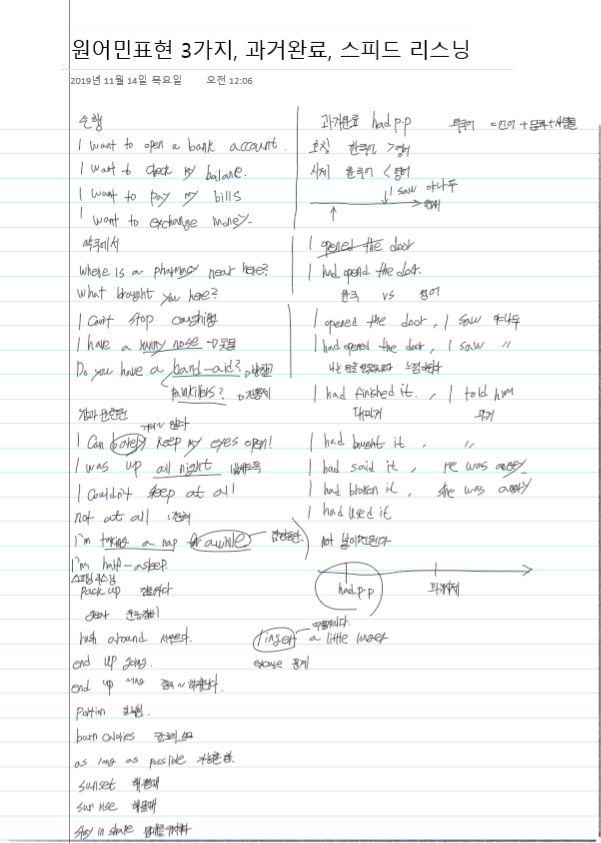 원어민표현 3가지, 과거완료, 스피드 리스닝
2019년 11월 14일 목요일 오전 12:06
은행
I want to open a bank account.
I want to check my balane.
I want to pay my bills
I want to exchange money.
약국에서
where is a pharmacy near here?
what brought you here?
I Can't stop coughing
I have a runny nose → 콧물
Do you have a band-aid?
painkillers? → 진통제
잠과 관련된
거의~ 않다
I Can barely keep my eyes open!
I was up all night
I Couldn't sleep at all
not at all 전혀
I'm taking a nap for awhile 잠깐동안
I'm half-asleep.
스피드 리스닝
pack up
gear 운동장비
rush around 서두르다.
end up going.
end up ~ing 결국 ~하게된다.
portion
burn calories 칼로리
as long as possible 가능한
sunset 해질때
sunrise 해뜰때
stay in shape
과거완료 had p.p 외국어 = 언어 + 문화 + 사람들
호칭 한국어 > 영어
시제 한국어 < 영어
I saw 야나두
현재
I opened the door
I had opend the door.
한국 vs 영어
I opened the door, I saw 야나두
I had opened the door, I saw "
I had finshed it. , I told him
대과거 과거
I had bought it , "
I had said it , He was angry
I had broken it , she was angry
I had used it
not
had p.p 과거시제
linger a little longer
excuse 핑계